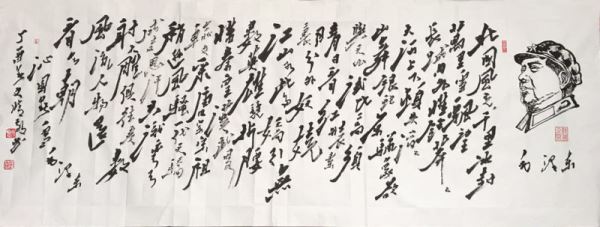 毛泽东
北国風光千里冰封
萬里雪飘望
長城内外惟餘莽莽
大河上下顿失滔滔
山舞銀蛇原驰蜡象欲
與天公試比高須
晴日看红装素
裹分外妖娆
江山如此多娇引無
數英雄競折腰
惜秦皇漢武略輸
文采唐宗宋祖
稍逊風騷一代天骄
成吉思汗只識弯弓
射大雕俱往矣數
風流人物还
看今朝
沁園春雪 毛泽东
丁酉年